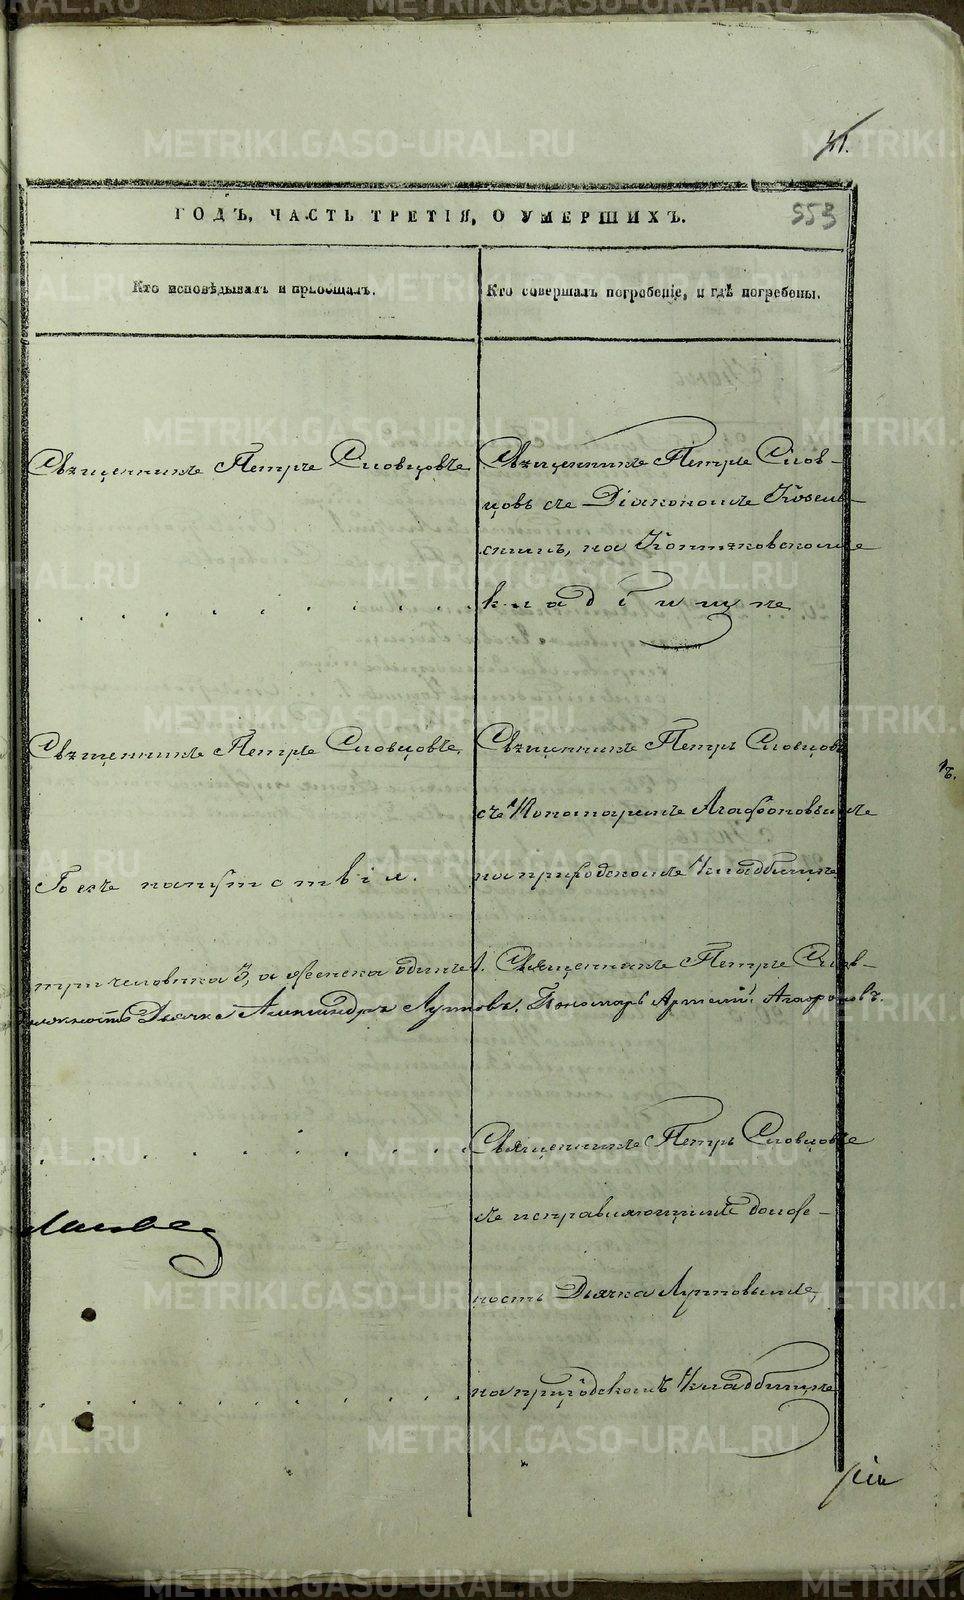 41.
ГОДЪ, ЧАСТЬ ТРЕТІЯ, О УМЕРШИХЪ. 553
Кто исповѣдывалъ и пріобщалъ.
Кто совершалъ погребеніе, и гдѣ погребены.
Священникъ Петръ Словцовъ
Священникъ Петръ Слов-
цовъ съ Діакономъ Козель-
скимъ, на Коптяковскомъ
кладбищѣ
Священникъ Петръ Словцовъ,
Священникъ Петръ Словцовъ
съ Пономаремъ Агафоновымъ
Безъ напутствія.
на приходскомъ кладбищѣ
три человѣка 3, а женска одинъ 1. Священникъ Петръ Слов-
должность Дьячка Александръ Лутовъ. Пономарь Артемій Агафоновъ.
Священникъ Петръ Словцовъ
съ исправляющимъ долж-
ность Дьячка Лутовымъ,
на приходскомъ кладбищѣ
METRIKI.GASO-URAL.RU